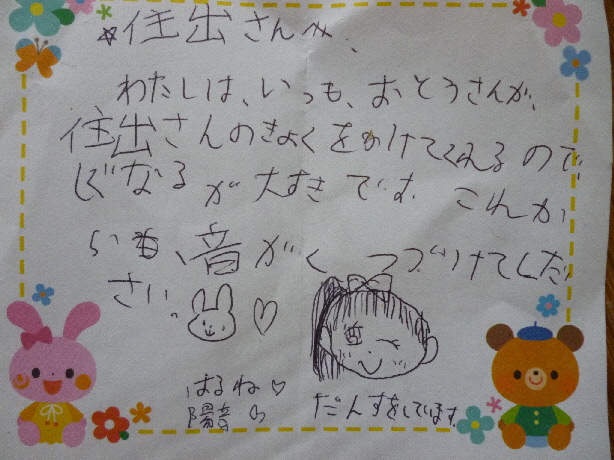 ☆住出さんへ、
わたしは、いつも、おとうさんが、
住出さんのきょくをかけてくれるので
じなるが大すきです。これか
らも、音がくつづけてくだ
さい。
はるね♡
陽音
だんすをしています。